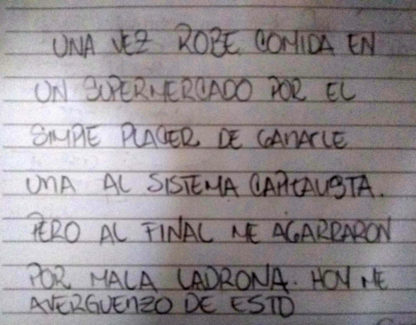 UNA VEZ ROBE COMIDA EN
UN SUPERMERCADO POR EL
SIMPLE PLACER DE GANARLE
UNA AL SISTEMA CAPITALISTA.
PERO AL FINAL ME AGARRARON
POR MALA LADRONA. HOY ME
AVERGUENZO DE ESTO